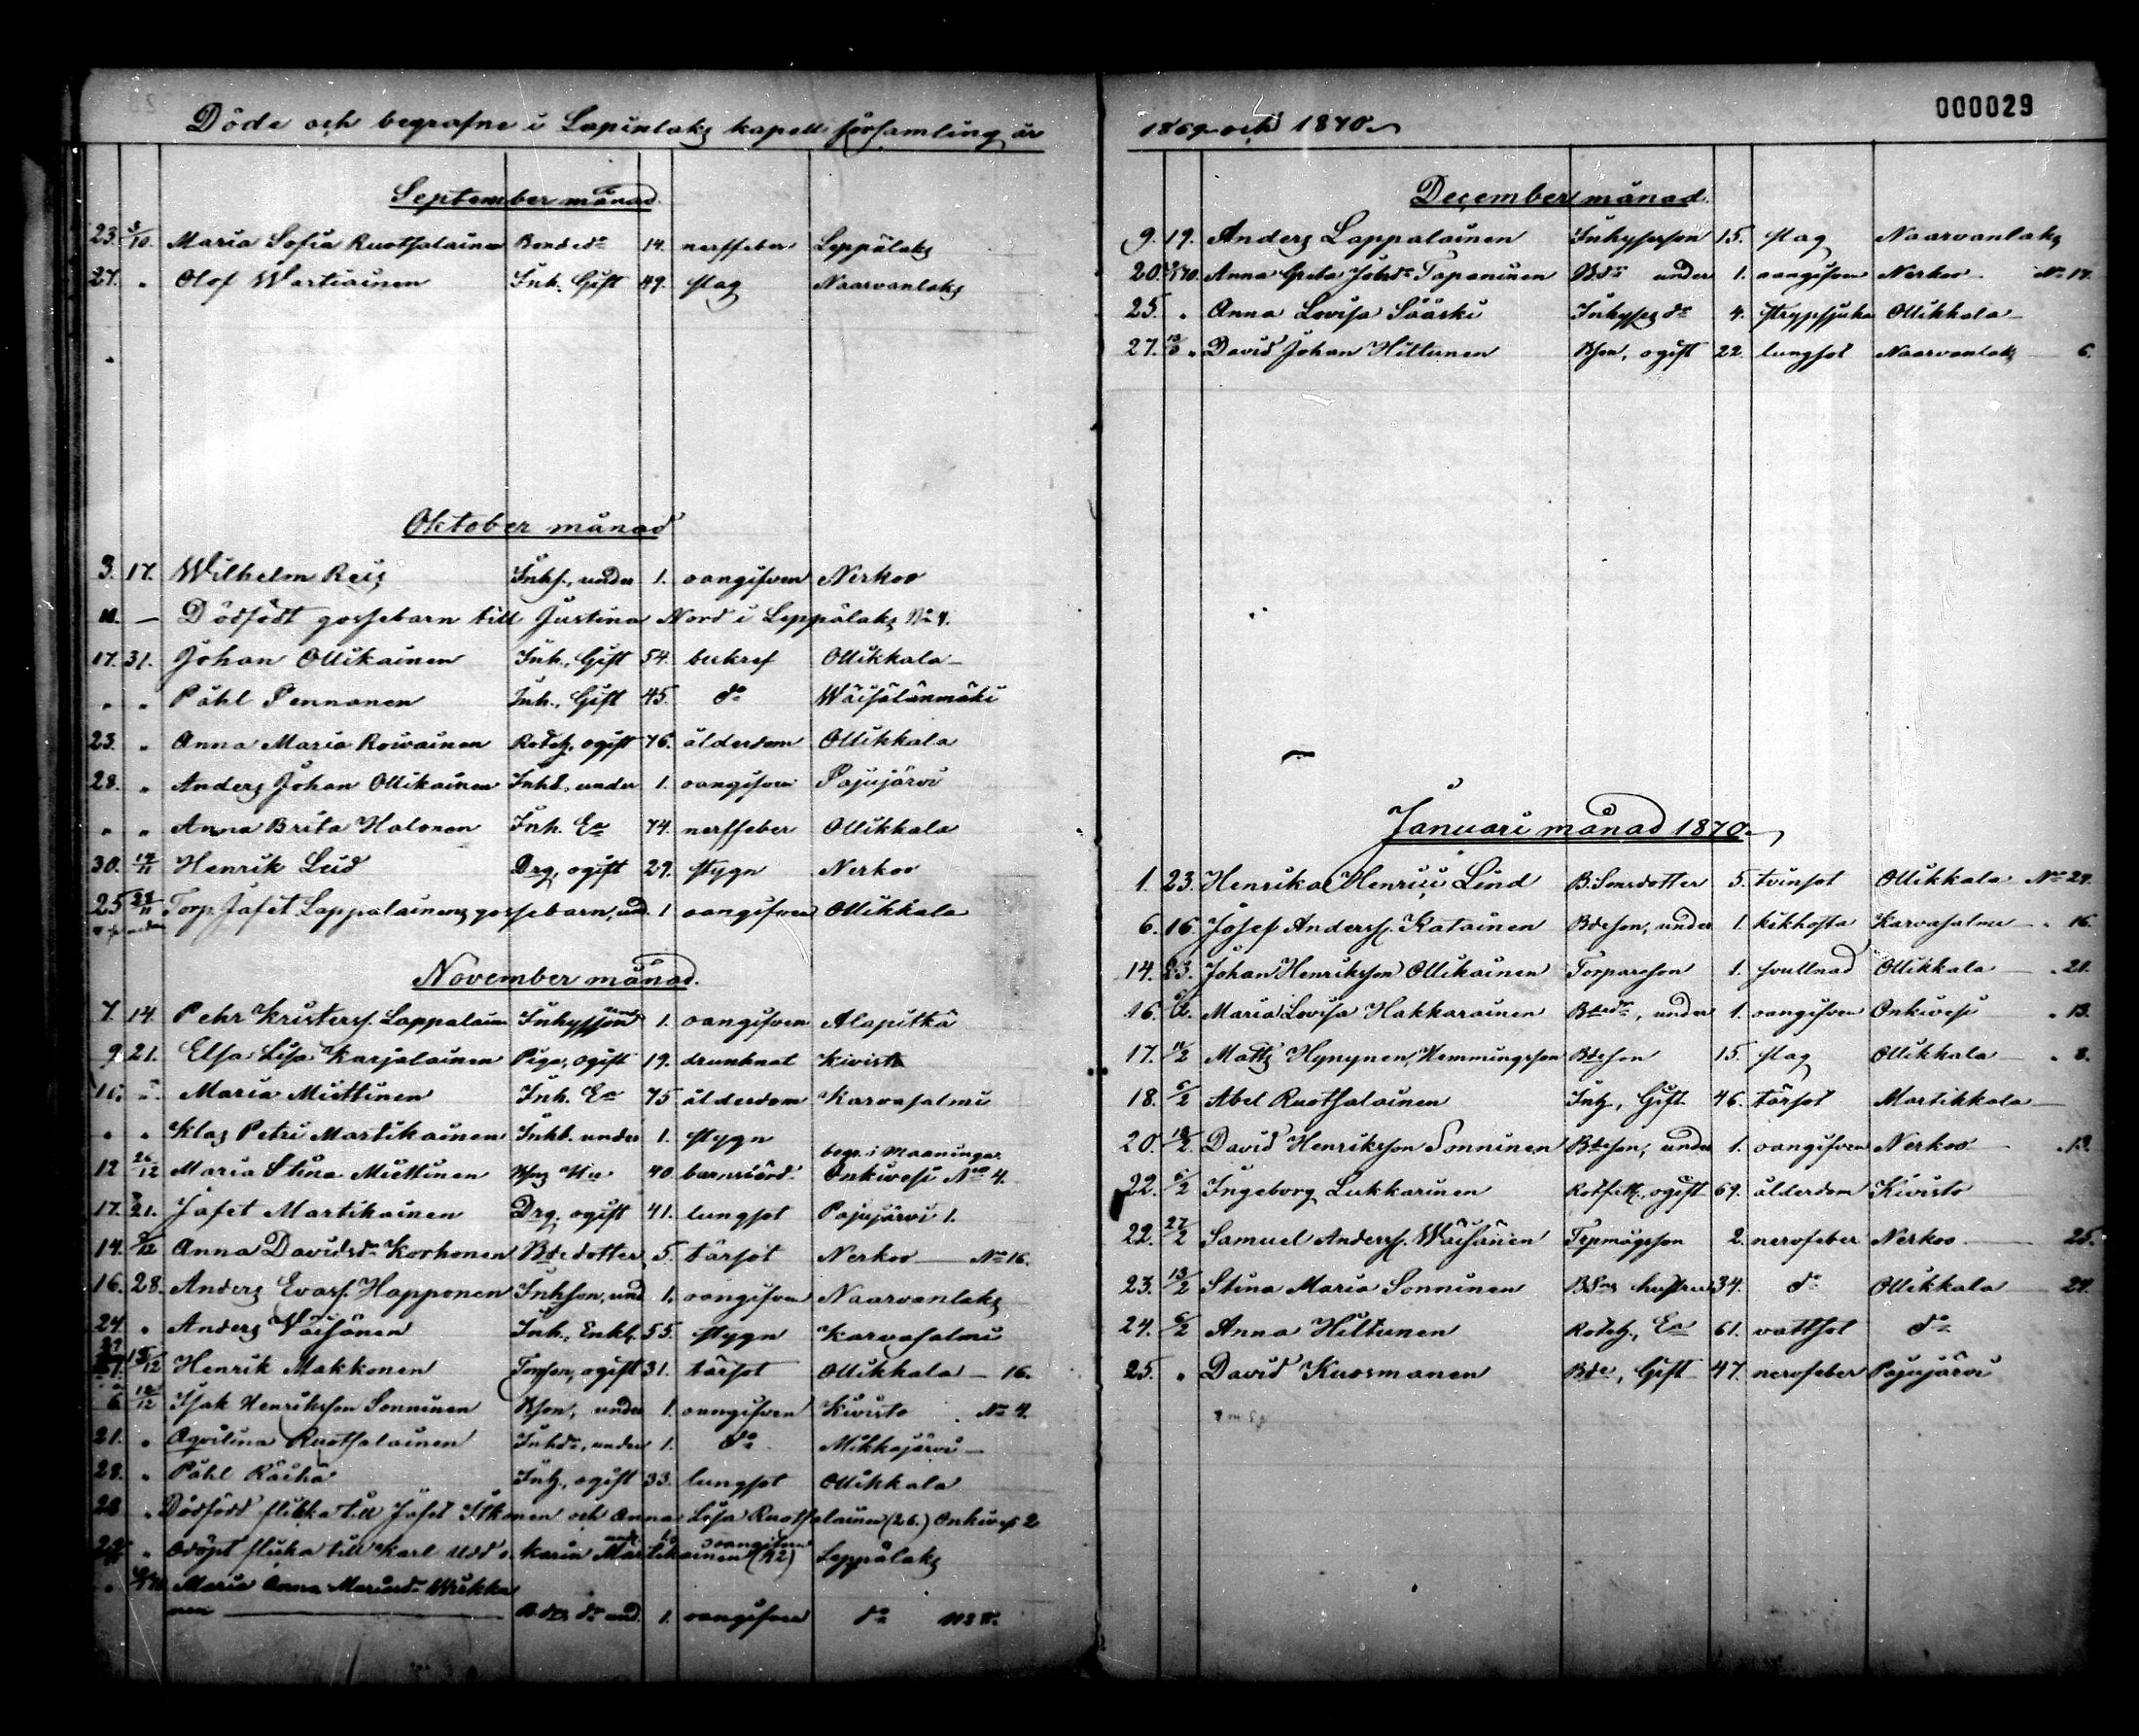 Döde och begrafne i Lapinlaks kapell församling år
September månad.
23. 3/10. Maria Sofia Ruotsalainen Bondeda 14. nerffeber Leppälaks
27. " Olof Wartiainen Inh. Gift 49. slag Naarvanlaks
Oktober månad
3. 17. Wilhelm Reis Inhs., under 1. oangifven Nerkoo
11. — Dödfödt gossebarn till Justina Nord i Leppälaks No 4.
17. 31. Johan Ollikainen Inh., Gift 54. Ollikkala
" " Påhl Pennanen Inh., Gift 45. do Wäisälänmäki
23. " Anna Maria Rowainen Rothj, ogift 76. ålderdom Ollikkala
28. " Anders Johan Ollikainen Inhs., under 1. oangifven Pajujärvi
" " Anna Brita Halonen Inh. Ea 74. nerffeber Ollikkala
30. 14/11 Henrik Leid Drg, ogift 29. stygn Nerkoo
25 28/11 Torp. Jafet Lappalainens gossebarn, und. 1 oangifven Ollikkala
November månad.
7. 14. Pehr Kristerss. Lappalain Inhysson under 1. oangifven Alapitkä
9. 21. Elsa Lisa Karjalainen Piga, ogift 19. drunknat Kivistö
10. " Maria Miettinen Inh. Ea 75 ålderdom Karvasalmi
" " Klas Petri Martikainen Inhb. under 1. stygn
begr. i Maaninga.
12 26/12 Maria Stina Miettinen 40. barnsbörd Onkivesi No 4.
17. 21. Jafet Martikainen Drg. ogift 41. lungsot Pajujärvi 1.
14. 5/12 Anna Davidsdr Korhonen Bdedotter 5. tärsot Nerkoo — No 16.
16. 28. Anders Evass. Happonen Inhson, und 1. oangifven Naarvanlaks
24. " Anders Väisänen Inh., Enkl. 55. stygn Karvasalmi
12/12 Henrik Makkonen Torpson, ogift 31. tärsot Ollikkala — 16.
6. 12/12 Isak Henriksson Sonninen Bson, under 1. oangifven Kivistö No 4.
21. " Aqvilina Ruotsalainen Inhdr, under 1. do Mikkajärvi —
28. " Påhl Räihä Inh, ogift 33. lungsot Ollikkala
28 " Dödfödd flicka till Jafet Itkonen och Anna Lisa Ruotsalainen (26.) Onkivesi 2
" Odöpt flicka till Karl Udd o. Karin Martikainen (42) oangifven Leppälaks
" Maria Anna Mariasdr Wirkka
nen — und. 1. oangifven do
1869 och 1870.
000029
December månad.
9. 19. Anders Lappalainen Inhysesson 15. slag Naarvanlaks
20. Anna Greta Johdr Tapaninen Bdr under 1. oangifven Nerkoo No 17.
25. " Anna Lovisa Sääski Inhyses dr 4. strypsjuka Ollikkala —
27. " David Johan Hiltunen Bson, ogift 22. lungsot Naarvanlaks 6.
Januari månad 1870.
1. 23. Henrika Henrici Lind B.Sonsdotter 5. tvinsot Ollikkala No 29.
6. 16. Josef Anderss. Katainen Bdeson, under 1. kikhosta Karvasalmi — " 16.
14. 23. Johan Henriksson Ollikainen Torpareson 1. svullnad Ollikkala — " 21.
16. 6/2. Maria Lovisa Hakkarainen Bdedr, under 1. oangifven Onkivesi " 13.
17. 11/2 Matts Hynynen, Hemmingsson Bdeson 15. slag Ollikkala — " 8.
18. 6/2 Abel Ruotsalainen Inh, Gift 46. tärsot Martikkala —
20. 13/2 David Henriksson Sonninen Bdeson, under 1. oangifven Nerkoo — " 13.
22. 6/2 Ingeborg Lukkarinen Rotfatt., ogift 69. ålderdom Kivistö
22. 27/2 Samuel Anderss. Wäisänen Tspmågsson 2. nervfeber Nerkoo — 25.
23. 13/2 Stina Maria Sonninen BSns hustru 34. do Ollikkala — 29.
24. 6/2 Anna Hiltunen Rothj., Ea 61. vattsot do
25. " David Kuosmanen Bde, Gift 47. nervfeber Pajujärvi